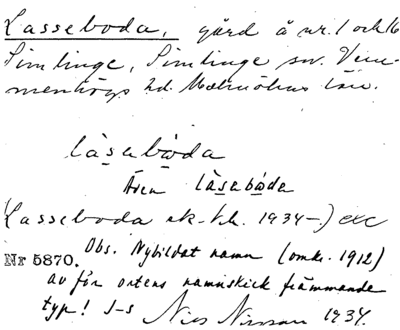 Lasseboda, gård å nr. 1 och 16
Simlinge, Simlinge sn. Vem-
menhögs hd. Malmöhus län.
làsabòda
Även làsabòda
(Lasseboda ek. kbl. 1934-)
Obs. Nybildat namn (omkr. 1912)
Nr 5870.
av för ortens namnskick främmande
typ! I-S
Nils Nilsson 1934.